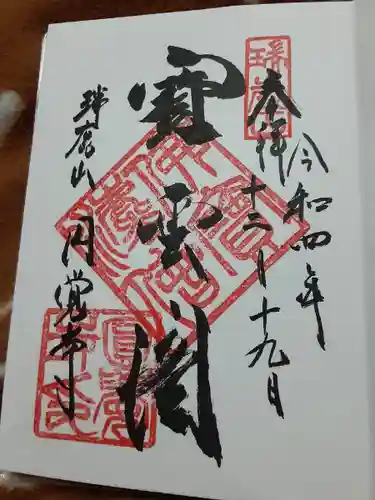 令和四年
奉拝 十二月十九日
寶雲閣
瑞鹿山 円覚寺